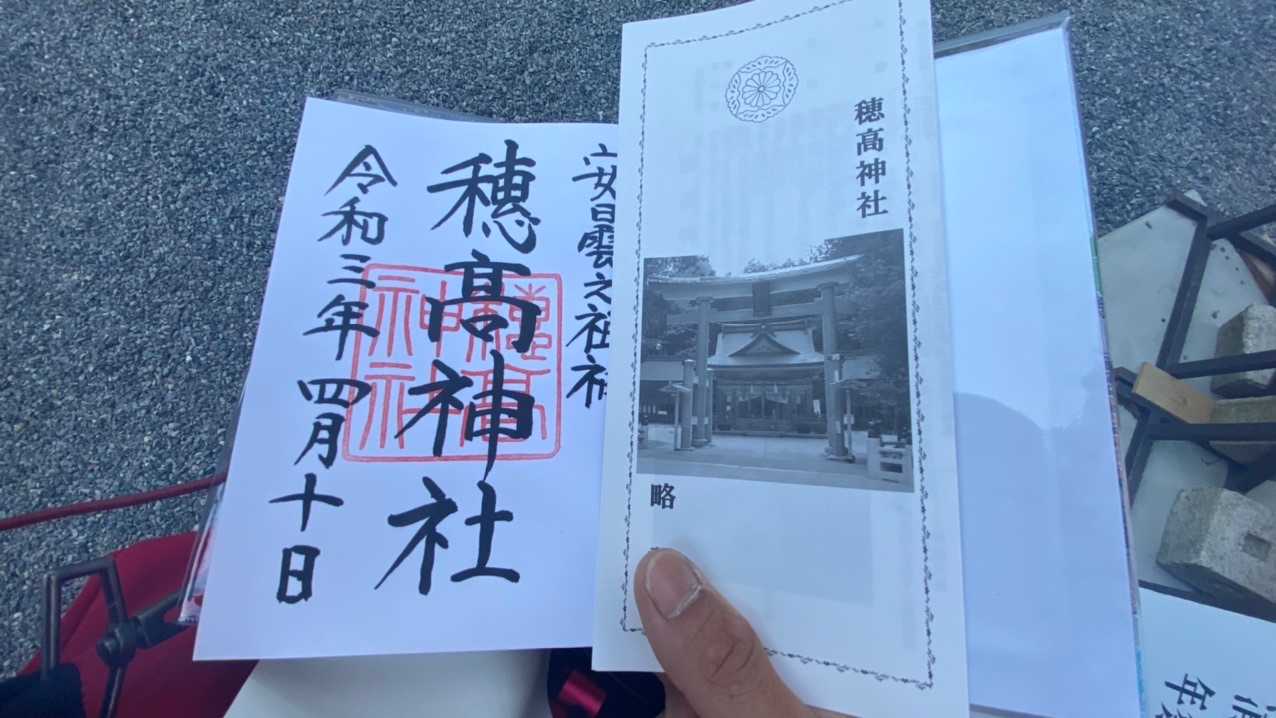 安曇之祖神
穂高神社
令和三年四月十日
穂高神社
穂高神社
略
年